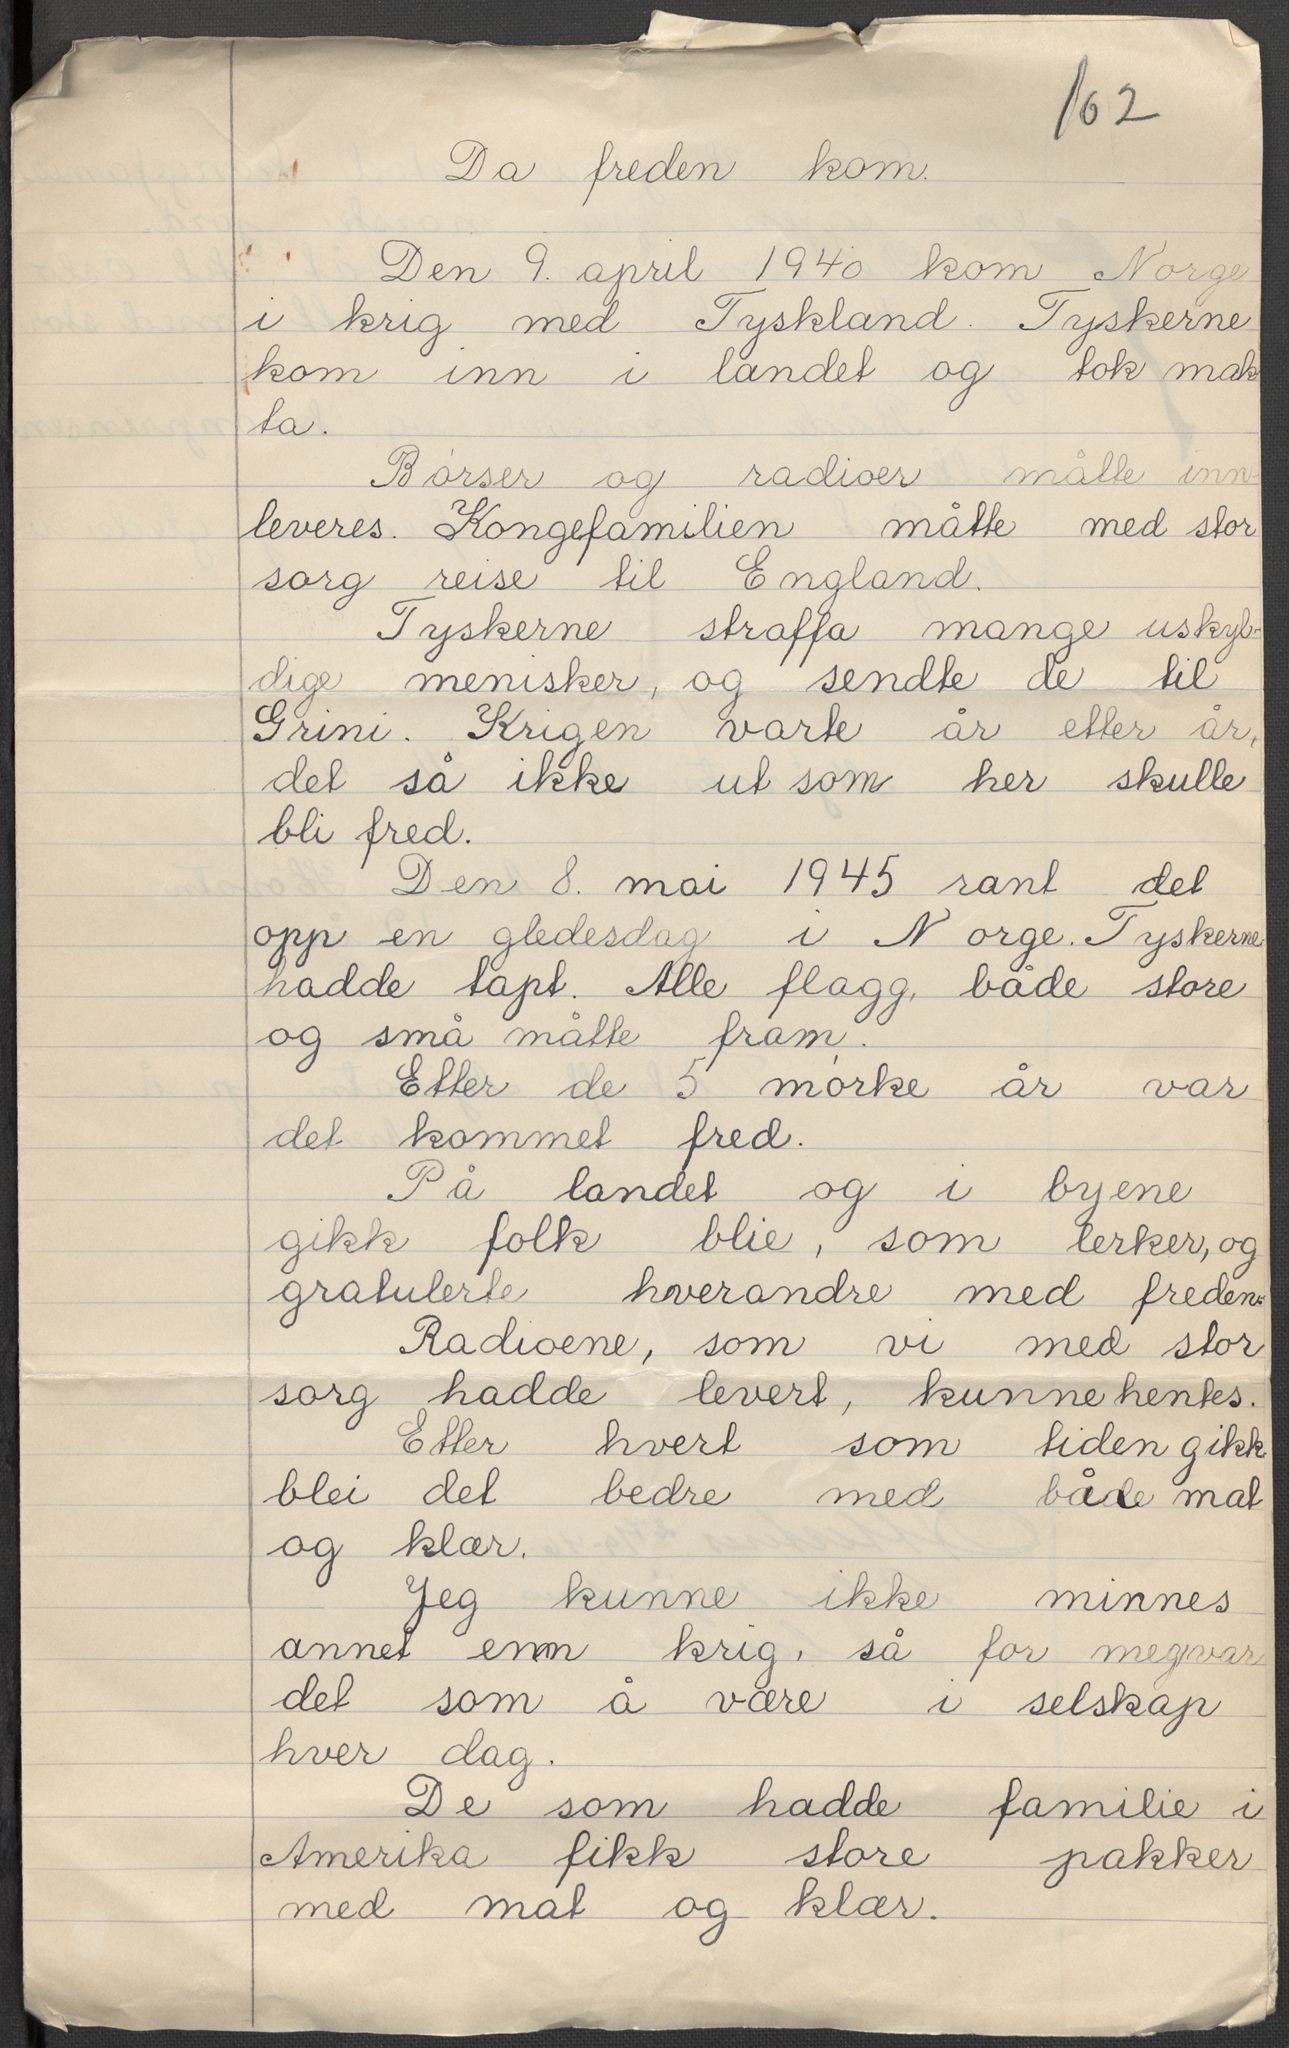 162
Da freden kom.
Den 9. april 1940 kom Norge
i krig med Tyskland. Tyskerne
kom inn i landet og tok mak-
ta.
Börser og radioer måtte inn-
leveres. Kongefamilien måtte med stor
sorg reise til England.
Tyskerne straffa mange uskyl-
dige menisker, og sendte de til
Grini. Krigen varte år etter år,
det så ikke ut som her skulle
bli fred.
Den 8. mai 1945 rant det
opp en gledesdag i Norge. Tyskerne
hadde tapt. Alle flagg, både store
og små måtte fram.
Etter de 5 mörke år var
det kommet fred.
På landet og i byene
gikk folk blie, som lerker, og
gratulerte hverandre med freden.
Radioene, som vi med stor
sorg hadde levert, kunne hentes.
Etter hvert som tiden gikk
blei det bedre med både mat
og klær.
Jeg kunne ikke minnes
annet enn krig, så for meg var
det som å være i selskap
hver dag.
De som hadde familie i
Amerika fikk store pakker
med mat og klær.